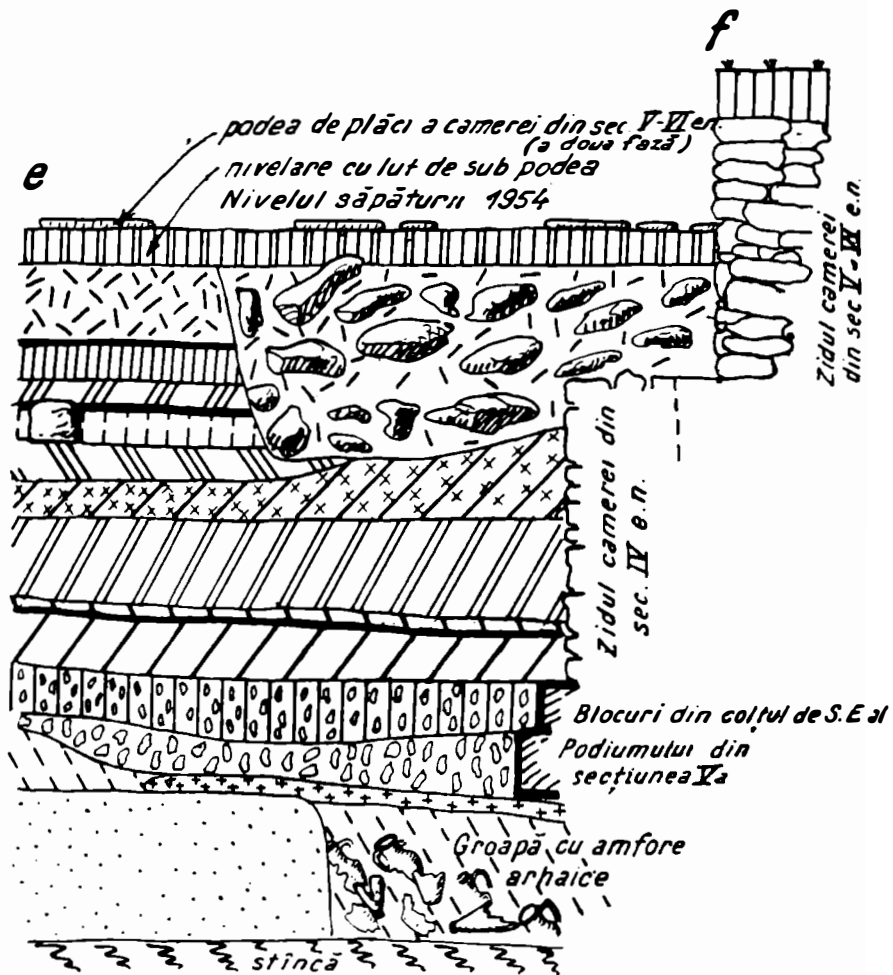 f
podea de plăci a camerei din sec. V-VI en
(a doua fază)
e
nivelare cu lut de sub podea
Nivelul săpăturii 1954
Zidul camerei
din sec V-VI e.n.
Zidul camerei din
sec. IV e.n.
Blocuri din colțul de S.E al
Podiumului din
secțiunea Va
Groapă cu amfore
arhaice
stîncă